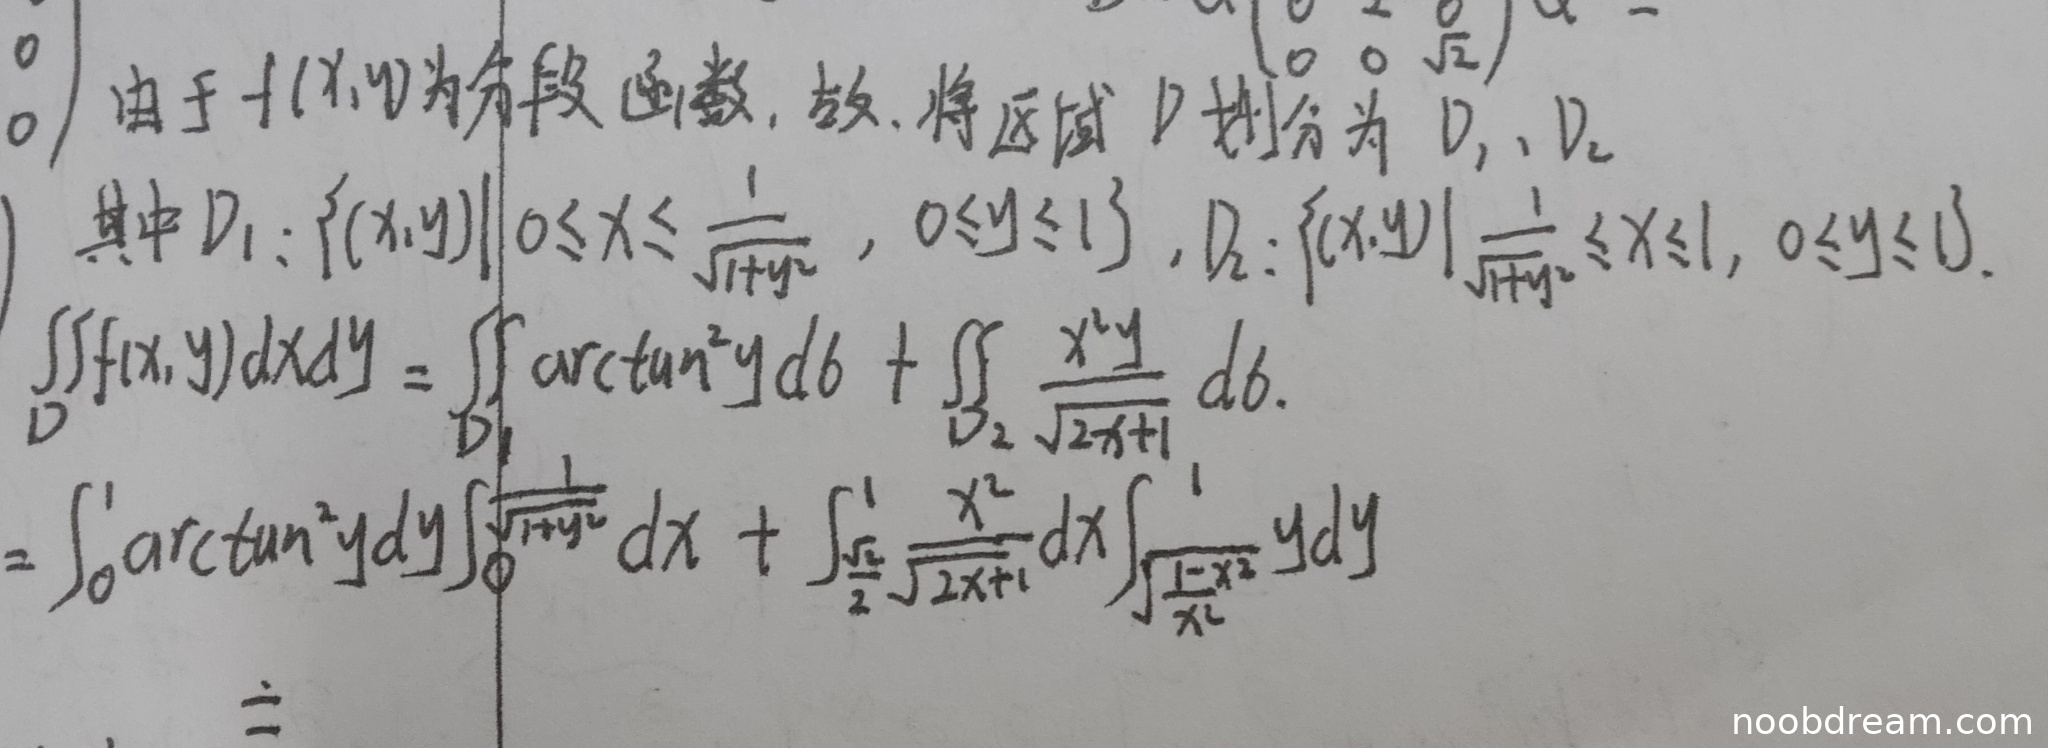 0 2 0
0
0 0 √2
0
由于f(x,y)为分段函数,故,将区域D划分为D₁、D₂
其中D₁:{(x,y)|0≤x≤1/√(1+y²), 0≤y≤1}, D₂:{(x,y)|1/√(1+y²)≤x≤1, 0≤y≤1}.
∬_D f(x,y)dxdy = ∬_D₁ arctan²y dσ + ∬_D₂ x²y/√(2x+1) dσ.
= ∫₀¹ arctan²y dy ∫₀^(1/√(1+y²)) dx + ∫_(√2/2)^1 x²/√(2x+1) dx ∫_(√((1-x²)/x²))^1 y dy
=
noobdream.com